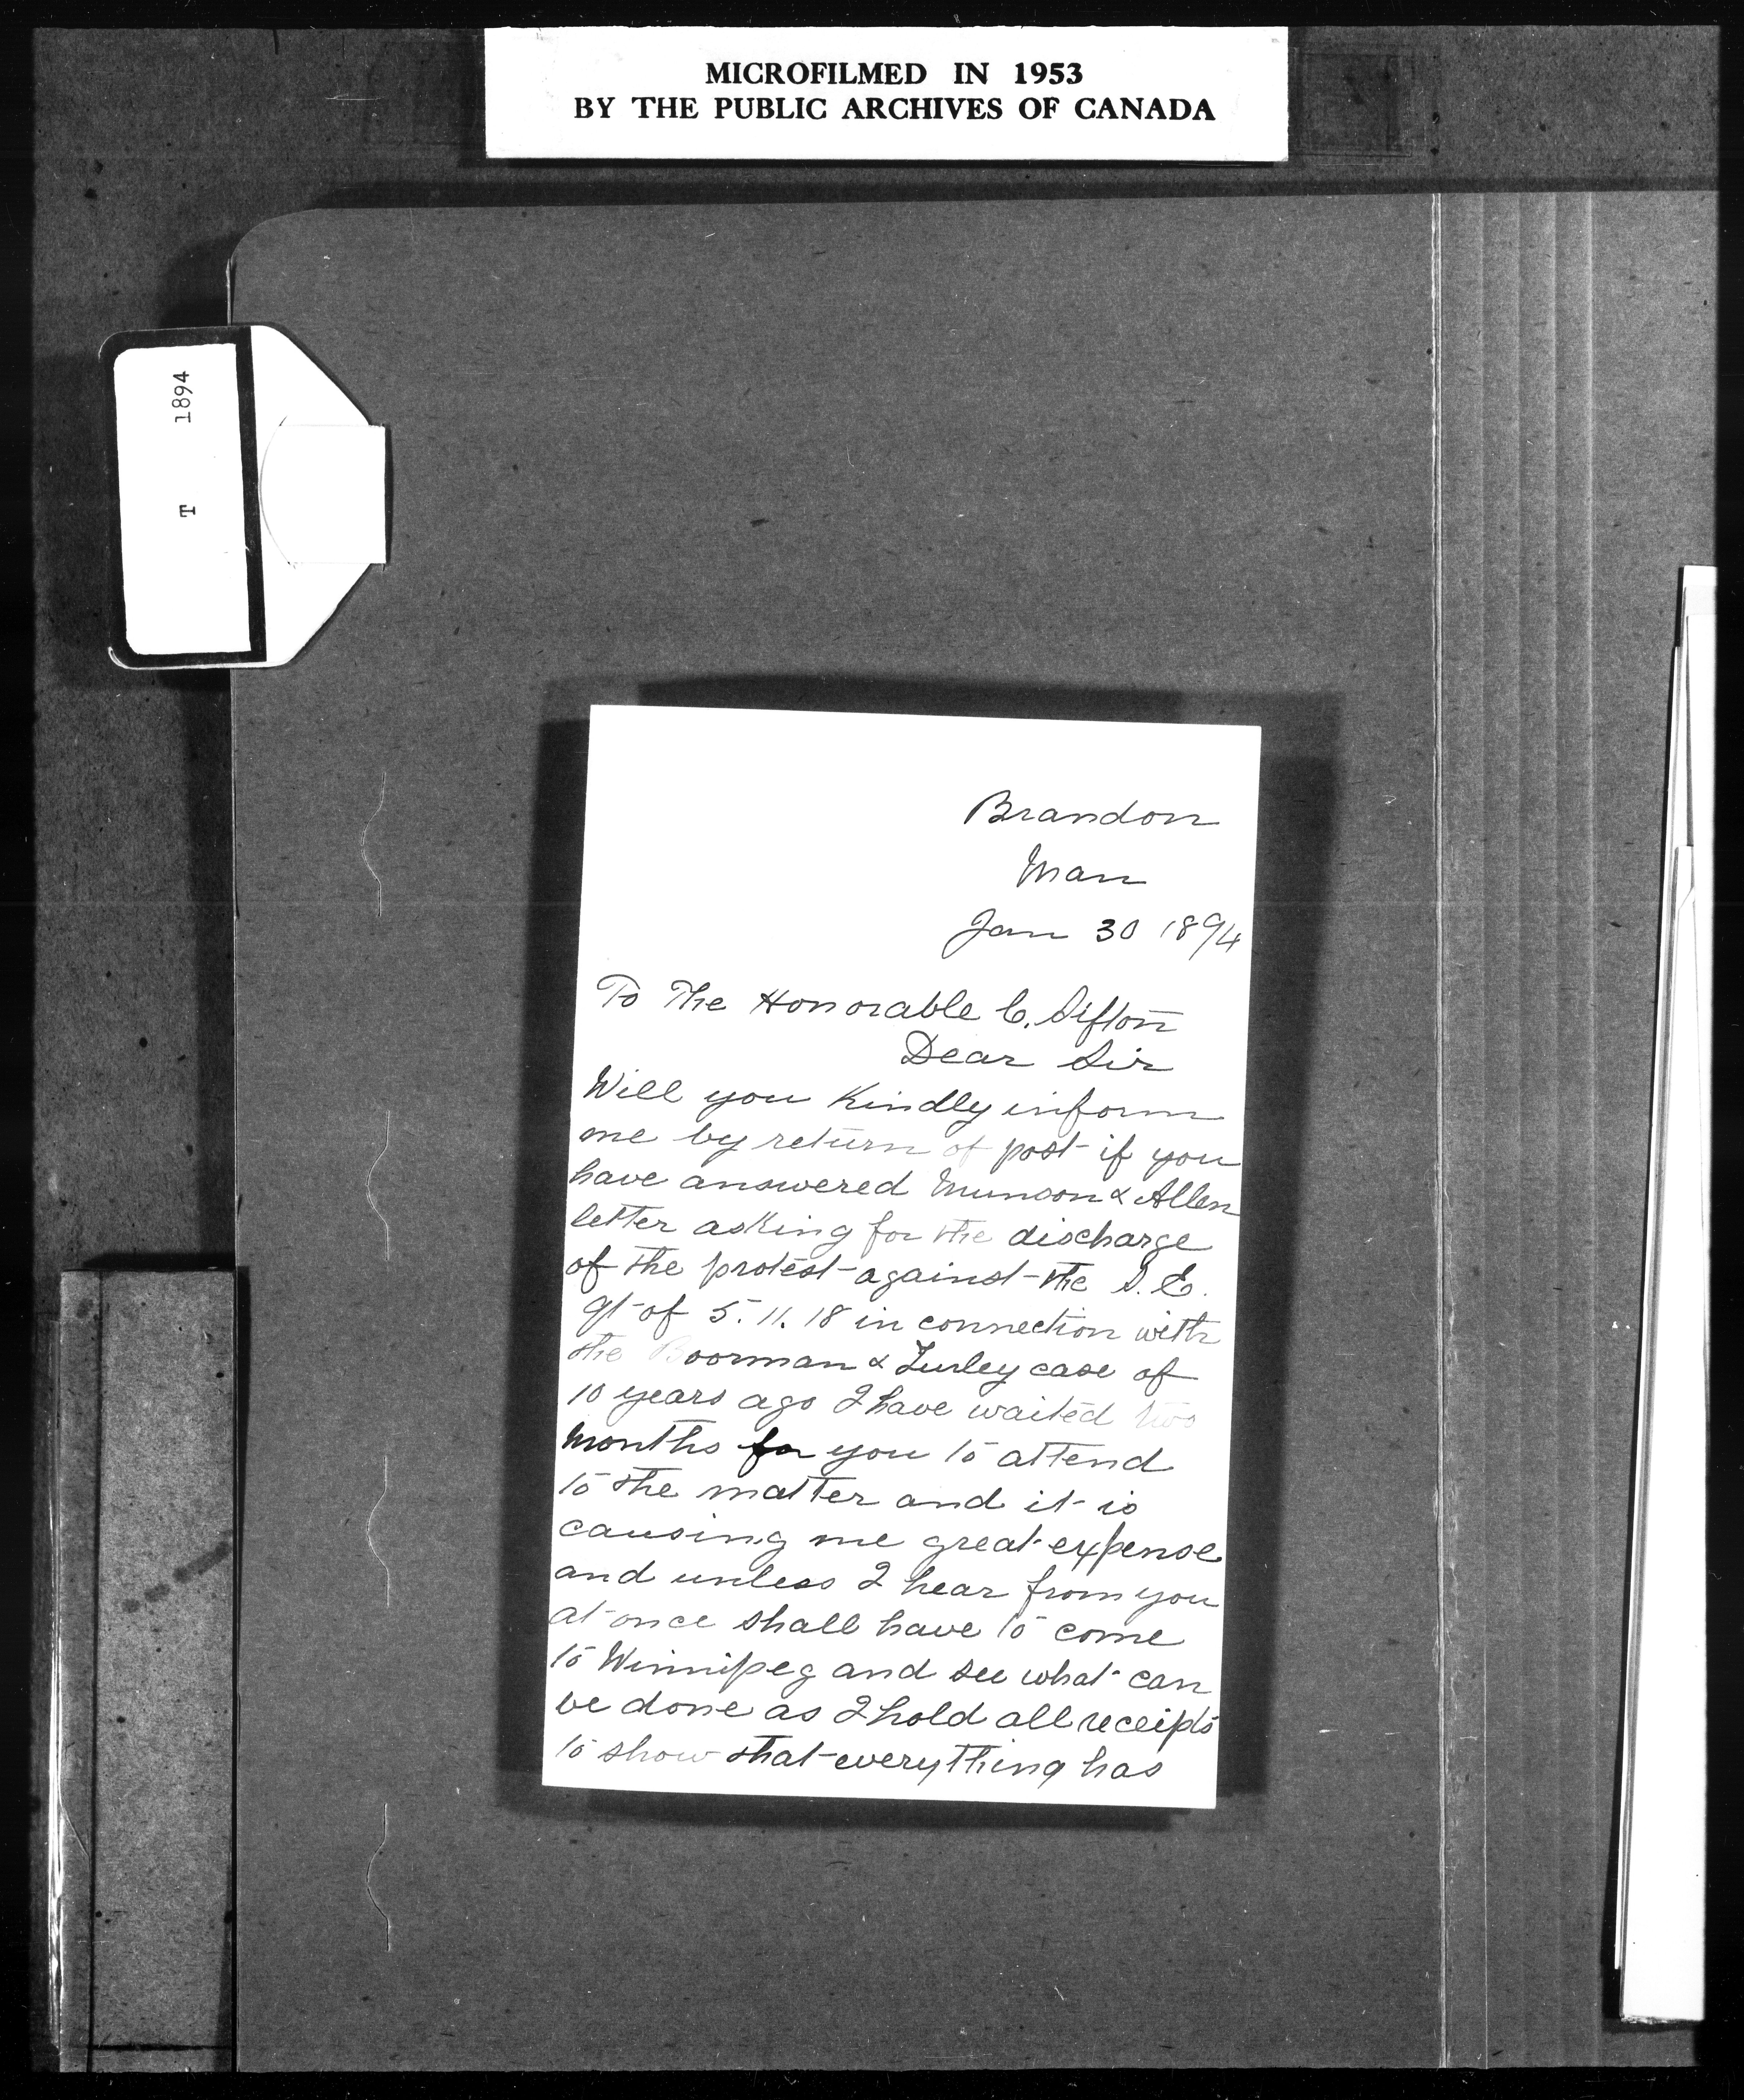 MICROFILMED IN 1953
BY THE PUBLIC ARCHIVES OF CANADA
T 1894
Brandon
Man
Jan 30 1894
To The Honorable C. Sifton
Dear Sir
Will you Kindly inform
me by return of post if you
have answered Munson & Allen
letter asking for the discharge
of the protest against the S.E.
qt of 5. 11. 18 in connection with
the Boorman & Turley case of
10 years ago I have waited two
months for you to attend
to the matter and it is
causing me great expense
and unless I hear from you
at once shall have to come
to Winnipeg and see what can
be done as I hold all receipts
to show that everything has